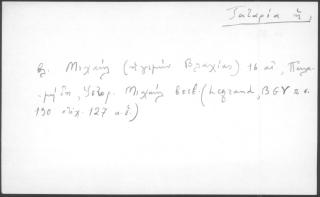 Ταταρία ἡ,
βλ. Μιχαὴλ (ἡγεμὼν Βλαχίας) 16 αἰ,
Ἱστορ. Μιχαὴλ βοεβ. (Legrand, BGV
190 στίχ. 127 κ.ἑ.)